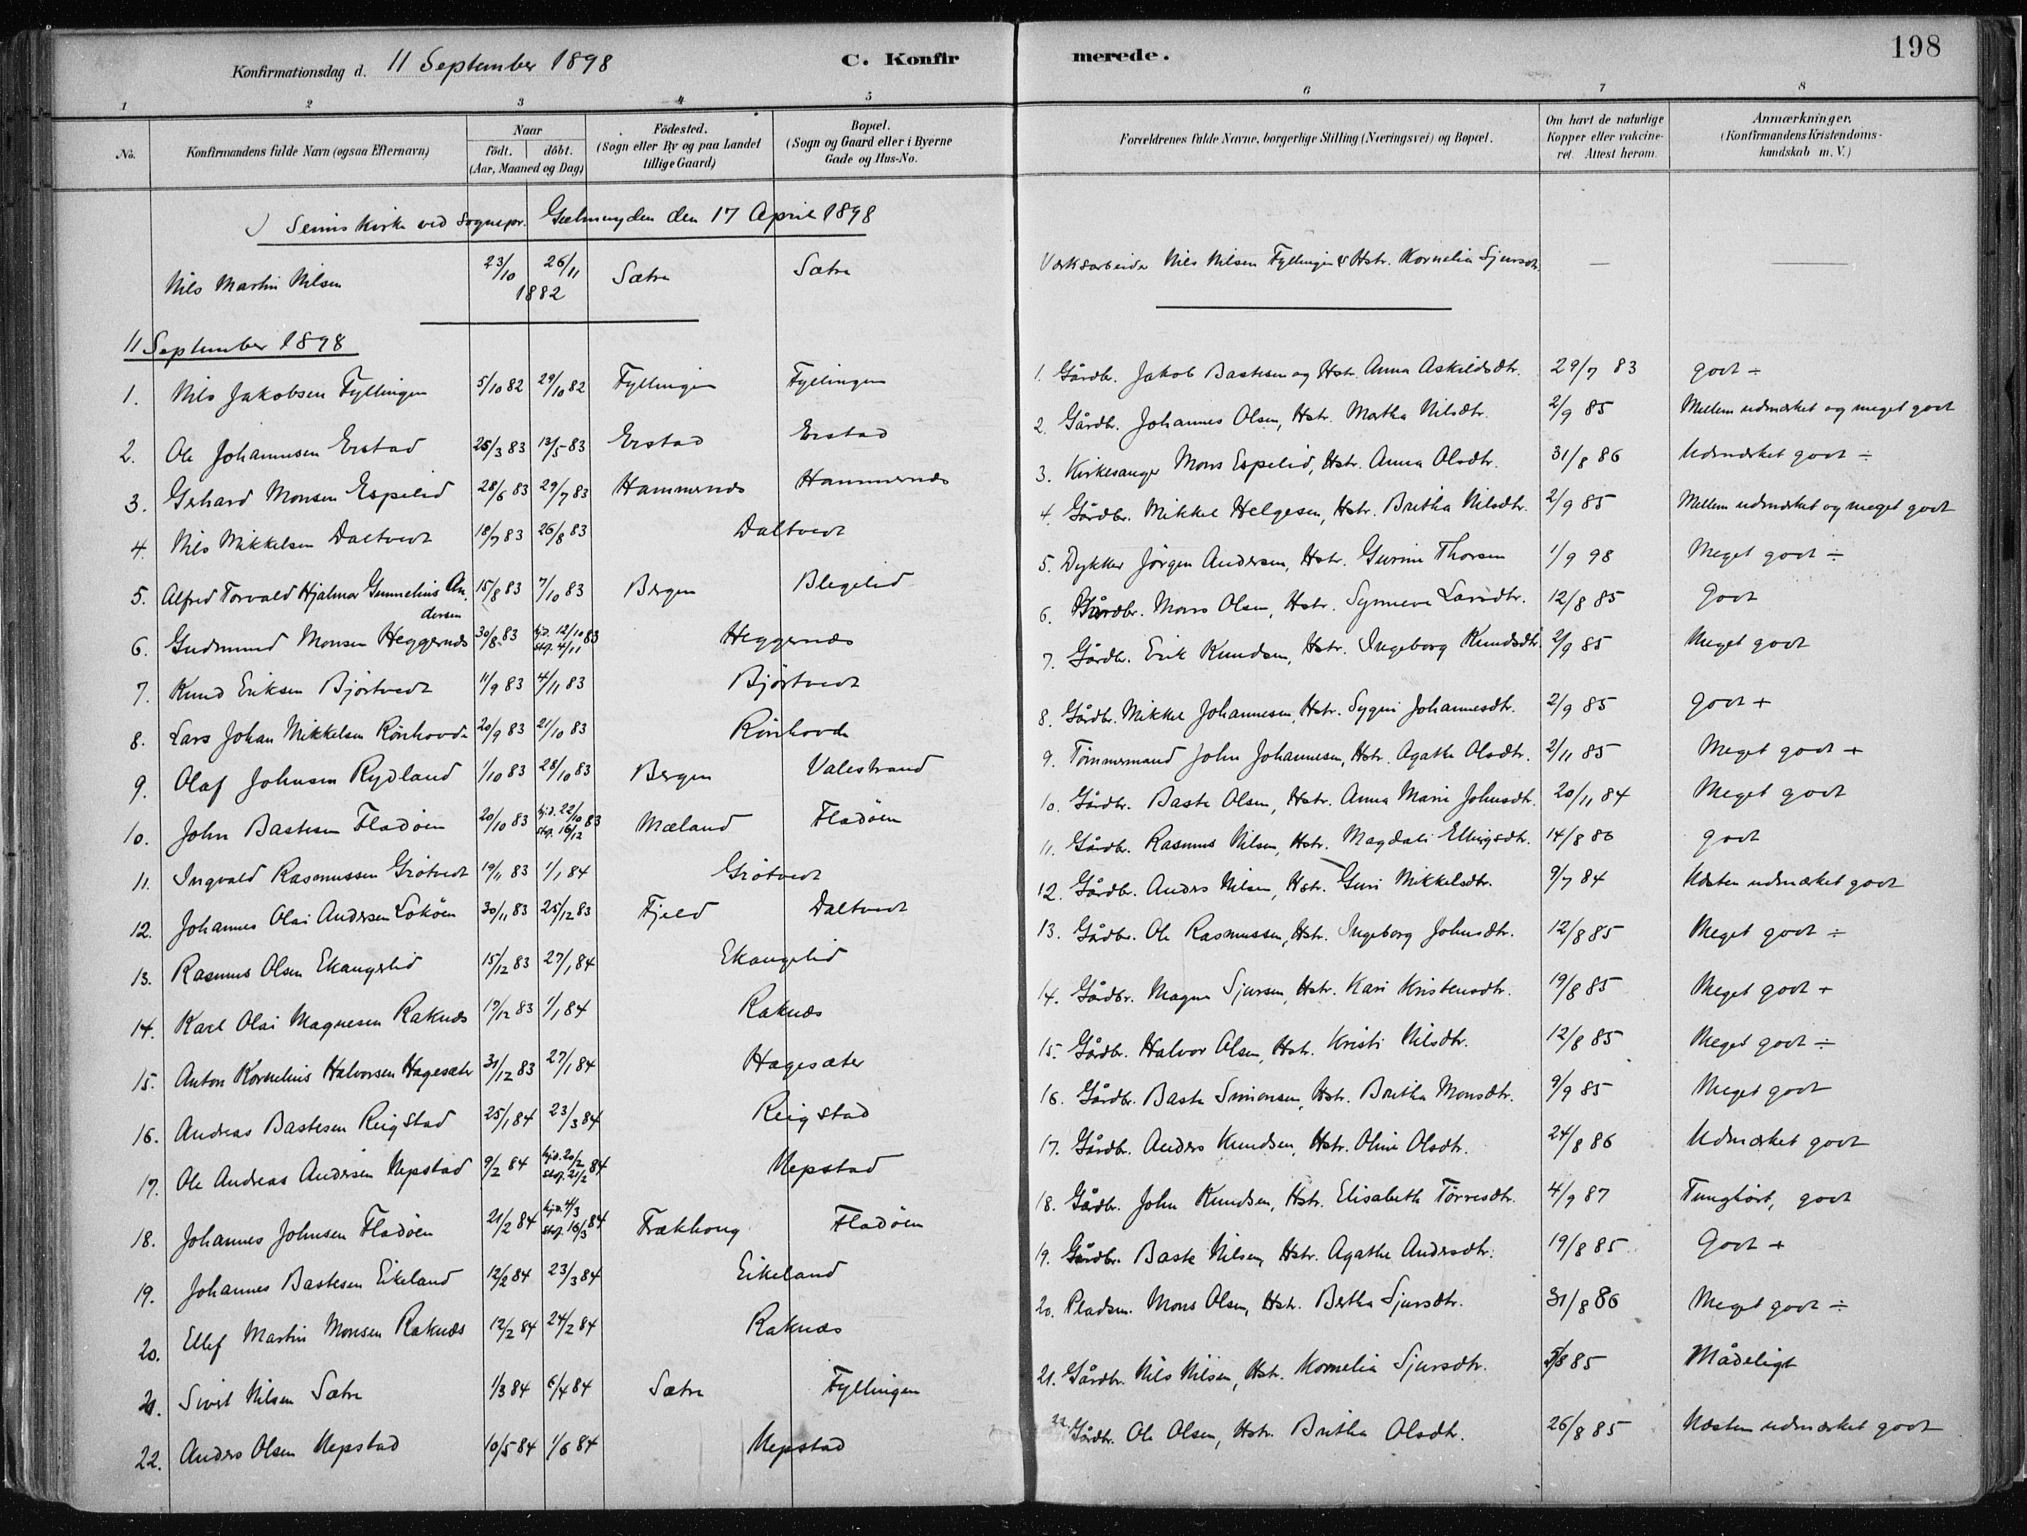 198
Konfirmationsdag d. 11 September 1898 C. Konfirmerede.
1 2 3 4 5 6 7 8
No. Konfirmandens fulde Navn (ogsaa Efternavn) Naar födt. döbt. (Aar, Maaned og Dag) Födested. (Sogn eller By og paa Landet tillige Gaard) Bopæl. (Sogn og Gaard eller i Byerne Gade og Hus-No. Forældrenes fulde Navne, borgerlige Stilling (Næringsvei) og Bopæl. Om havt de naturlige Kopper eller vakcineret. Attest herom. Anmærkninger. (Konfirmandens Kristendomskundskab m. V.)
kirke ved Sognepr. Gjelmuyden den 17 April 1898
Nils Martin Nilsen 23/10 26/11 1882 Sætre Sætre Værksarbeider Nils Nilsen Fyllingen & Hstr. Kornelia Sjursdtr. — —
11 September 1898
1. Nils Jakobsen Fyllingen 5/10 82 29/10 82 Fyllingen Fyllingen 1. Gårdbr. Jakob Bastesen og Hstr. Anna Askildsdtr. 29/7 83 godt ÷
2. Ole Johannesen Erstad 25/3 83 13/5 83 Erstad Erstad 2. Gårdbr. Johannes Olsen, Hstr. Martha Nilsdtr. 2/9 85 Mellem udmærket og meget godt
3. Gerhard Monsen Espelid 28/6 83 29/7 83 Hammernæs Hammernæs 3. Kirkesanger Mons Espelid, Hstr. Anna Olsdtr. 31/8 86 Udmærket godt ÷
4. Nils Mikkelsen Daltvedt 18/7 83 26/8 83 Daltvedt 4. Gårdbr. Mikkel Helgesen, Hstr. Britha Nilsdtr. 2/9 85 Mellem udmærket og meget godt
5. Alfred Torvald Hjalmar Gunnelius Andersen 15/8 83 7/10 83 Bergen Blegelid 5. Dykker Jörgen Andersen, Hstr. Gurine Thorsen 1/9 98 Meget godt ÷
6. Gudmund Monsen Heggernæs 30/8 83 hjd. 12/10 stf. 4/11 83 Heggernæs 6. Gårdbr. Mons Olsen, Hstr. Synneve Larsdtr. 12/8 85 Godt
7. Knud Eriksen Bjørtvedt 11/9 83 4/11 83 Bjørtvedt 7. Gårdbr. Erik Knudsen, Hstr. Ingeborg Knudsdtr. 2/9 85 Meget godt
8. Lars Johan Mikkelsen Rönhovde 20/9 83 21/10 83 Rönhovde 8. Gårdbr. Mikkel Johannesen, Hstr. Sygni Johannesdtr. 2/9 85 godt +
9. Olaf Johnsen Rydland 1/10 83 28/10 83 Bergen Valestrand 9. Tömmermand John Johannesen, Hstr. Agathe Olsdtr. 2/11 85 Meget godt +
10. John Bastesen Fladöen 20/10 83 hjd. 22/10 stf. 16/12 83 Mæland Fladöen 10. Gårdbr. Baste Olsen, Hstr. Anna Marie Johnsdtr. 20/11 84 Meget godt
11. Ingvald Rasmussen Grötvedt 19/11 83 1/1 84 Grötvedt 11. Gårdbr. Rasmus Nilsen, Hstr. Magdali Ellingsdtr. 14/8 86 godt
12. Johannes Olai Andersen Loköen 30/11 83 25/12 83 Fjeld Daltvedt 12. Gårdbr. Anders Nilsen, Hstr. Guri Mikkelsdtr. 9/7 84 Næsten udmærket godt
13. Rasmus Olsen Ekangslid 15/12 83 27/1 84 Ekangelid 13. Gårdbr. Ole Rasmussen, Hstr. Ingeborg Johnsdtr. 12/8 85 Meget godt ÷
14. Karl Olai Magnesen Raknæs 17/12 83 1/1 84 Raknæs 14. Gårdbr. Magne Sjursen, Hstr. Kari Kristensdtr. 19/8 85 Meget godt +
15. Anton Kornelius Halvorsen Hagesæter 31/12 83 27/1 84 Hagesæter 15. Gårdbr. Halvor Olsen, Hstr. Kristi Nilsdtr. 12/8 85 Meget godt ÷
16. Andreas Bastesen Reigstad 25/1 84 23/3 84 Reigstad 16. Gårdbr. Baste Simonsen, Hstr. Britha Monsdtr. 9/9 85 Meget godt
17. Ole Andreas Andersen Nepstad 9/2 84 hjd. 20/2 stf. 21/2 84 Nepstad 17. Gårdbr. Anders Knudsen, Hstr. Oline Olsdtr. 24/8 86 Udmærket godt
18. Johannes Johnsen Fladöen 21/2 84 hjd. 4/3 stf. 16/3 84 Frækhoug Fladöen 18. Gårdbr. John Knudsen, Hstr. Elisabeth Törresdtr. 4/9 87 Tunghört, godt
19. Johannes Bastesen Eikeland 12/2 84 23/3 84 Eikeland 19. Gårdbr. Baste Nilsen, Hstr. Agathe Andersdtr. 19/8 85 Godt +
20. Ellef Martin Monsen Raknæs 12/2 84 24/2 84 Raknæs 20. Pladsm. Mons Olsen, Hstr. Bertha Sjursdtr. 31/8 86 Meget godt ÷
21. Sivert Nilsen Sætre 1/3 84 6/4 84 Sætre Fyllingen 21. Gårdbr. Nils Nilsen, Hstr. Kornelia Sjursdtr. 5/8 85 Mådeligt
22. Anders Olsen Nepstad 10/5 84 1/6 84 Nepstad 22. Gårdbr. Ole Olsen, Hstr. Britha Olsdtr. 26/8 85 Næsten udmærket godt